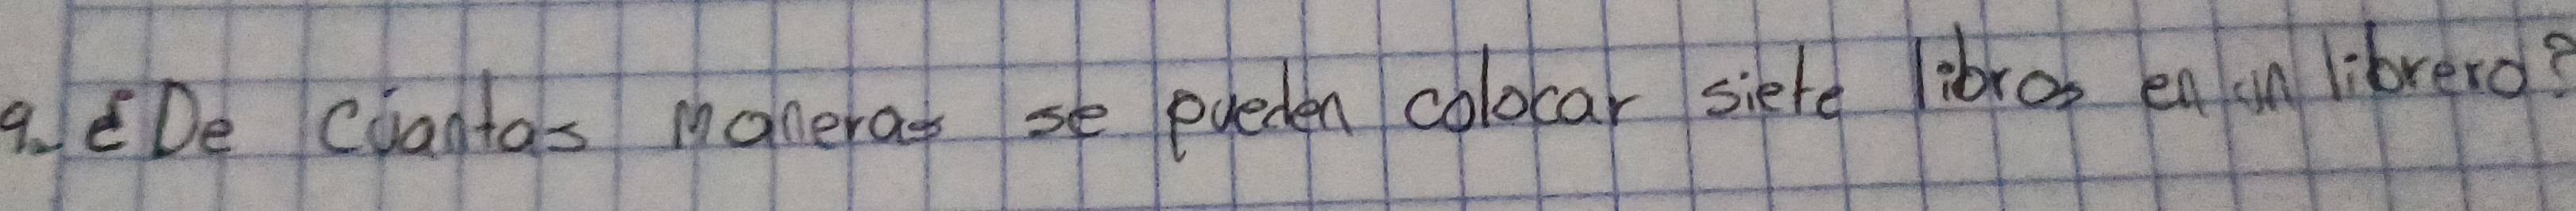 9. ¿De cuantas maneras se pueden colocar siete libros en un librero?